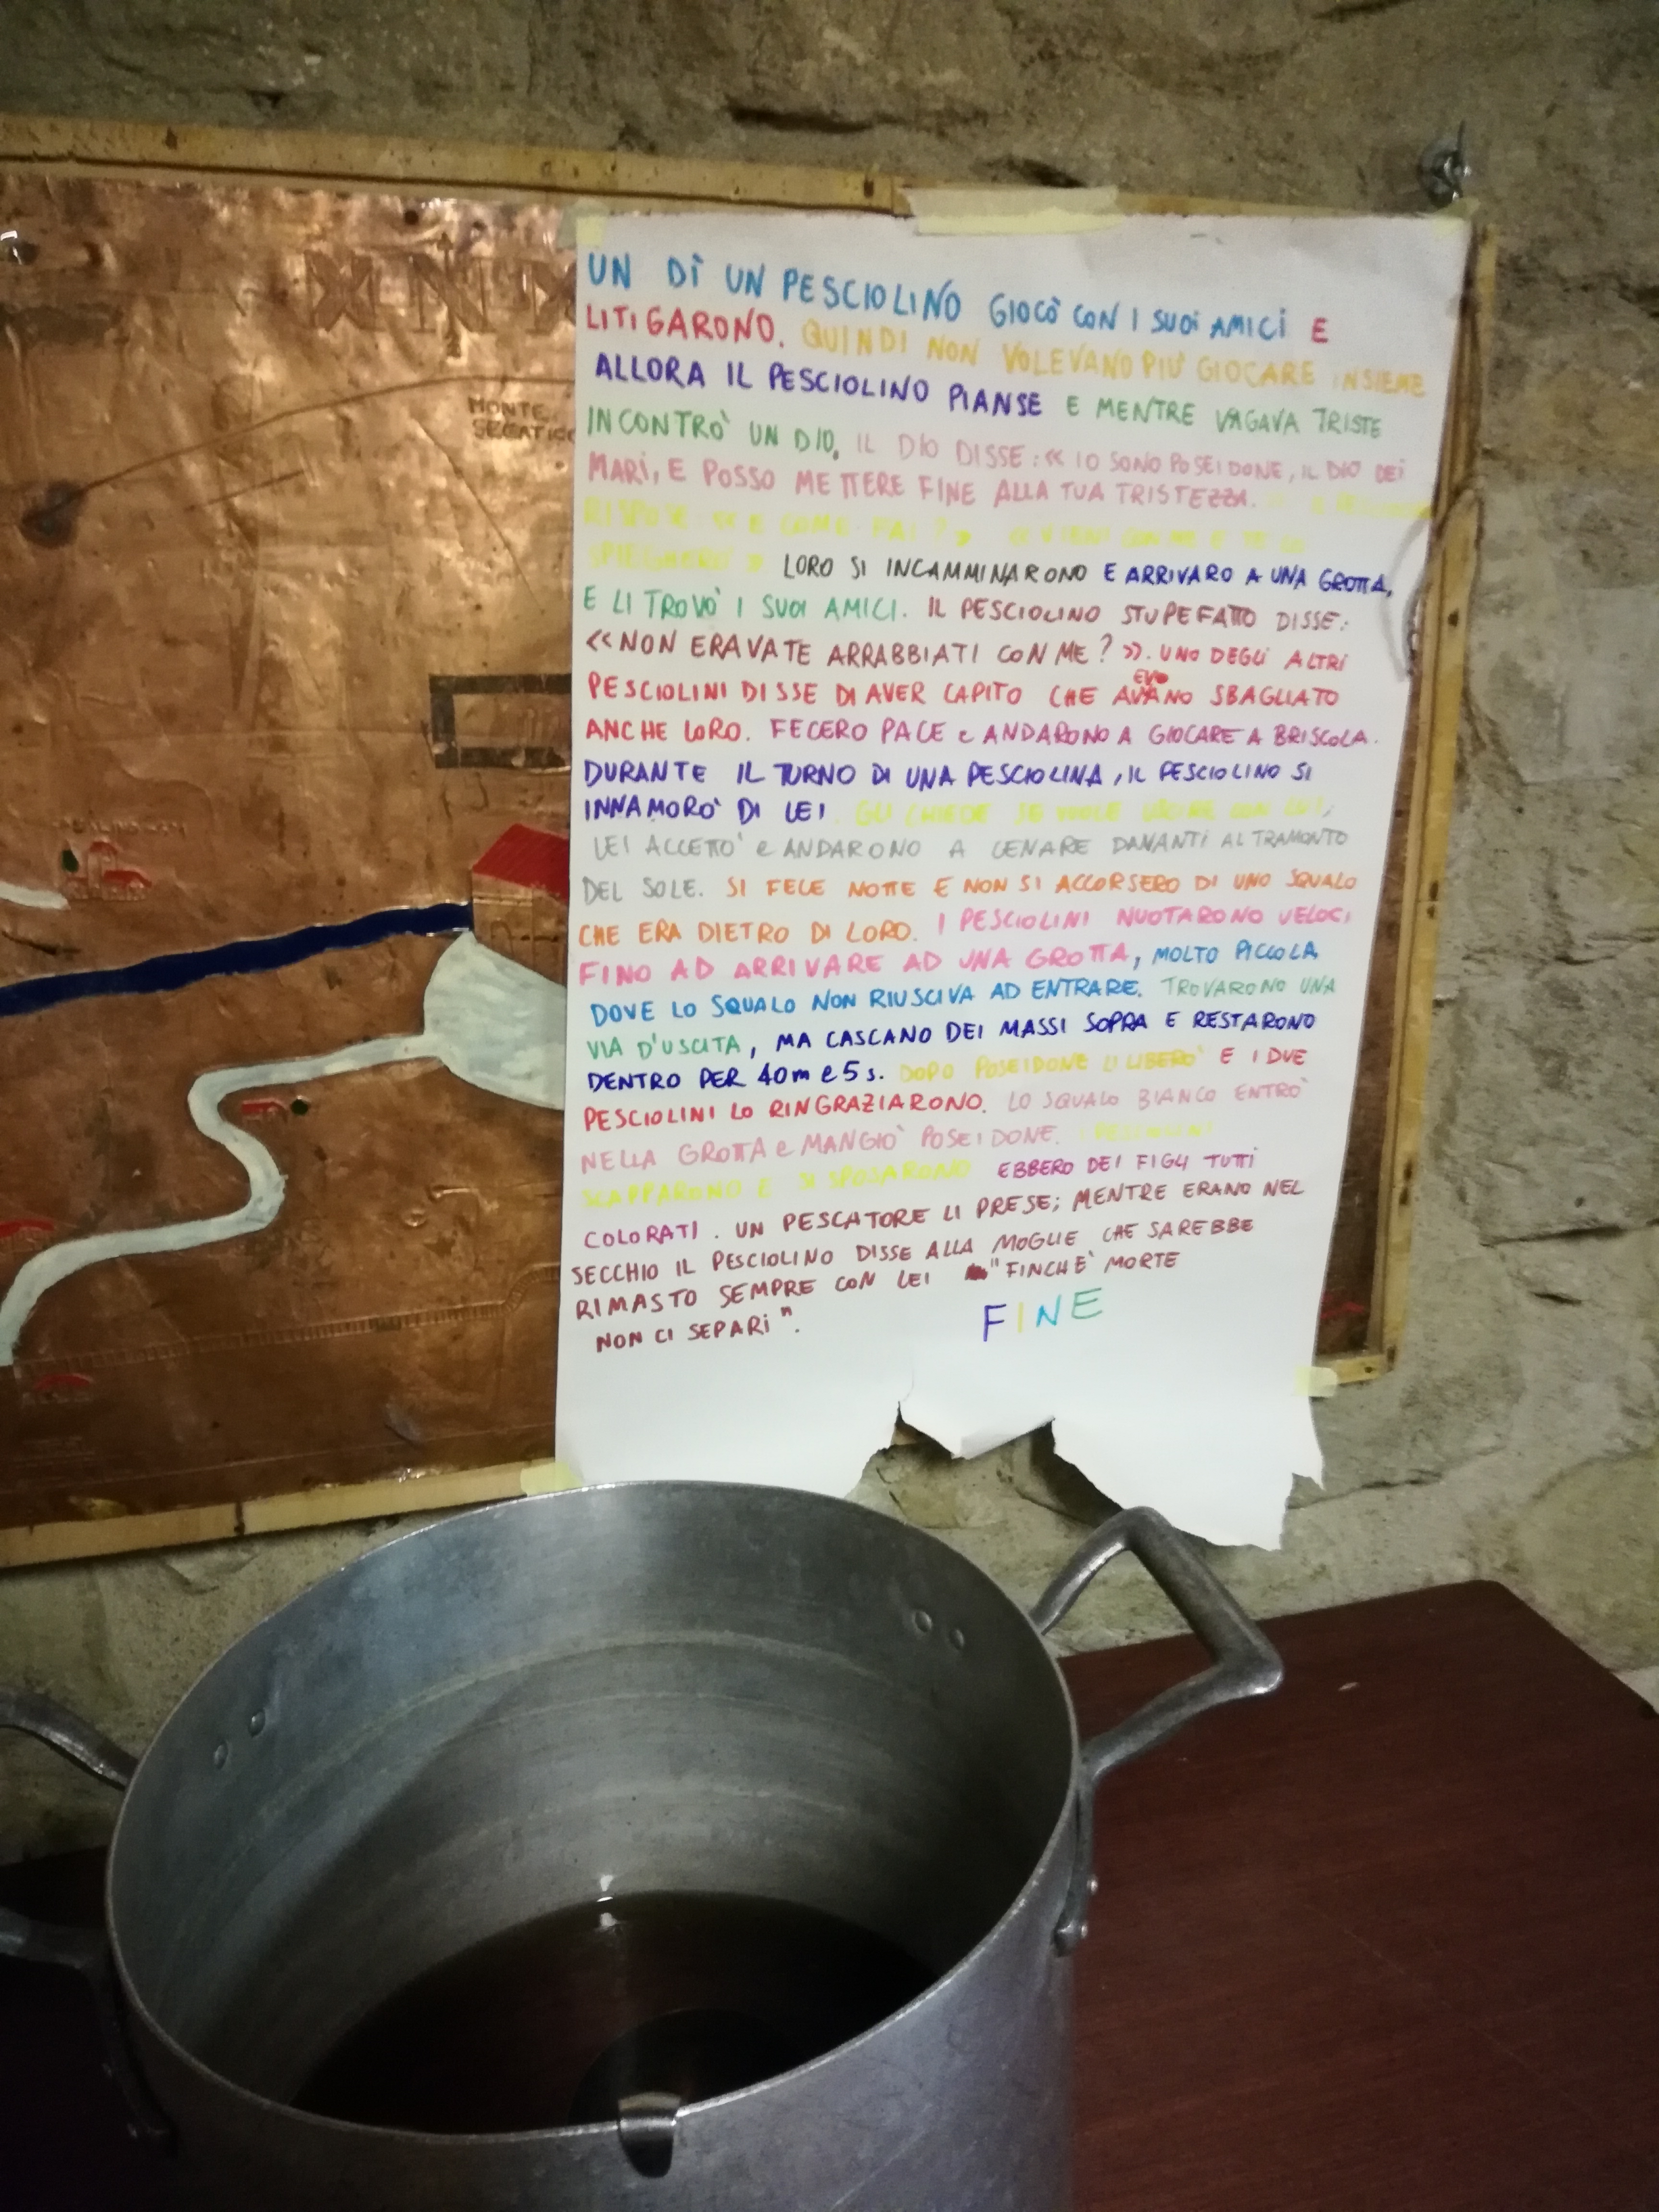 UN DÌ UN PESCIOLINO GIOCÒ CON I SUOI AMICI E
LITIGARONO. QUINDI NON VOLEVANO PIÙ GIOCARE INSIEME
ALLORA IL PESCIOLINO PIANSE E MENTRE VAGAVA TRISTE
INCONTRÒ UN DIO, IL DIO DISSE: «IO SONO POSEIDONE, IL DIO DEI
MARI, E POSSO METTERE FINE ALLA TUA TRISTEZZA.
RISPOSE: «E COME FAI?» «VIENI CON ME E TE LO
SPIEGHERÒ» LORO SI INCAMMINARONO E ARRIVARO A UNA GROTTA,
E LI TROVÒ I SUOI AMICI. IL PESCIOLINO STUPEFATTO DISSE:
«NON ERAVATE ARRABBIATI CON ME?». UNO DEGLI ALTRI
PESCIOLINI DISSE DI AVER CAPITO CHE AVEVANO SBAGLIATO
ANCHE LORO. FECERO PACE e ANDARONO A GIOCARE A BRISCOLA.
DURANTE IL TURNO DI UNA PESCIOLINA, IL PESCIOLINO SI
INNAMORÒ DI LEI. GLI CHIEDE SE VUOLE USCIRE CON LUI,
LEI ACCETTÒ e ANDARONO A CENARE DAVANTI AL TRAMONTO
DEL SOLE. SI FECE NOTTE E NON SI ACCORSERO DI UNO SQUALO
CHE ERA DIETRO DI LORO. I PESCIOLINI NUOTARONO VELOCI
FINO AD ARRIVARE AD UNA GROTTA, MOLTO PICCOLA
DOVE LO SQUALO NON RIUSCIVA AD ENTRARE. TROVARONO UNA
VIA D'USCITA, MA CASCANO DEI MASSI SOPRA E RESTARONO
DENTRO PER 40m e 5s. DOPO POSEIDONE LI LIBERÒ E I DUE
PESCIOLINI LO RINGRAZIARONO. LO SQUALO BIANCO ENTRÒ
NELLA GROTTA e MANGIÒ POSEIDONE. I PESCIOLINI
SCAPPARONO E SI SPOSARONO EBBERO DEI FIGLI TUTTI
COLORATI. UN PESCATORE LI PRESE; MENTRE ERANO NEL
SECCHIO IL PESCIOLINO DISSE ALLA MOGLIE CHE SAREBBE
RIMASTO SEMPRE CON LEI "FINCHÈ MORTE
NON CI SEPARI".
FINE
MONTE